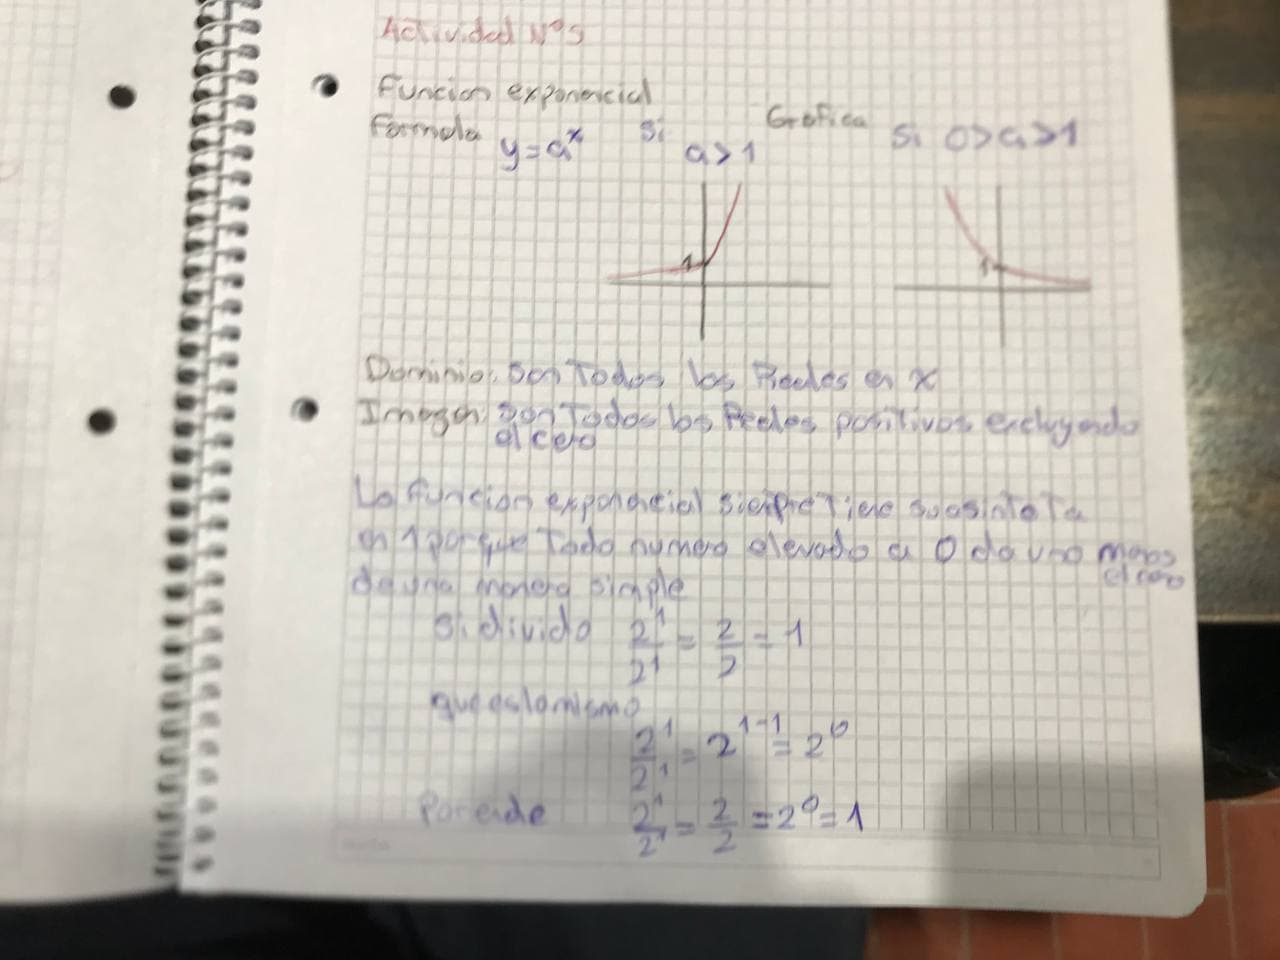 Actividad N°5
Funcion exponencial
Formula y=a^x si a>1 Grafica si 0>a>1
1 1
Dominio: son Todos los Reales en x
Imagen: son Todos los Reales positivos excluyendo
el cero
La funcion exponencial siempre Tiene su asintota
en 1 porque Todo numero elevado a 0 da uno menos
el cero
de una manera simple
si divido 2^1/2^1 = 2/2 = 1
que es lo mismo
2^1/2^1 = 2^1-1 = 2^0
Por ende 2^1/2^1 = 2/2 = 2^0 = 1